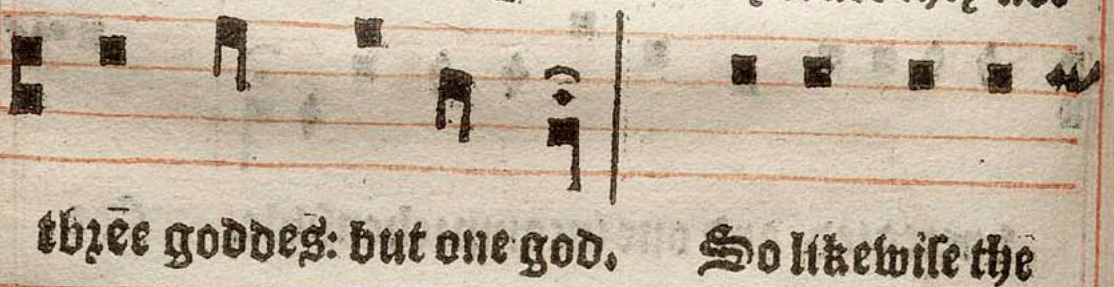 they not
thrēe goddes: but one god. So likewise the